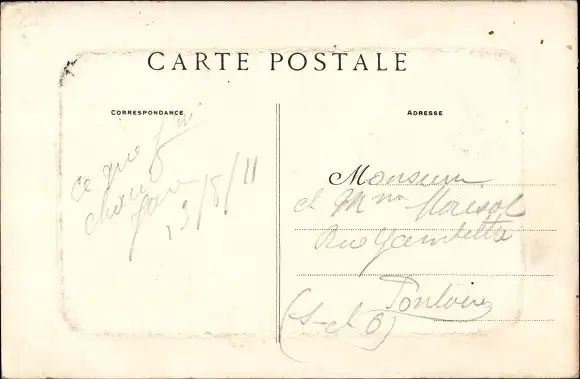 CARTE POSTALE
CORRESPONDANCE
ce que j'ai
13/8/11
ADRESSE
Monsieur
et Mme
Rue Gambetta
Pontoise
(S-et-O)